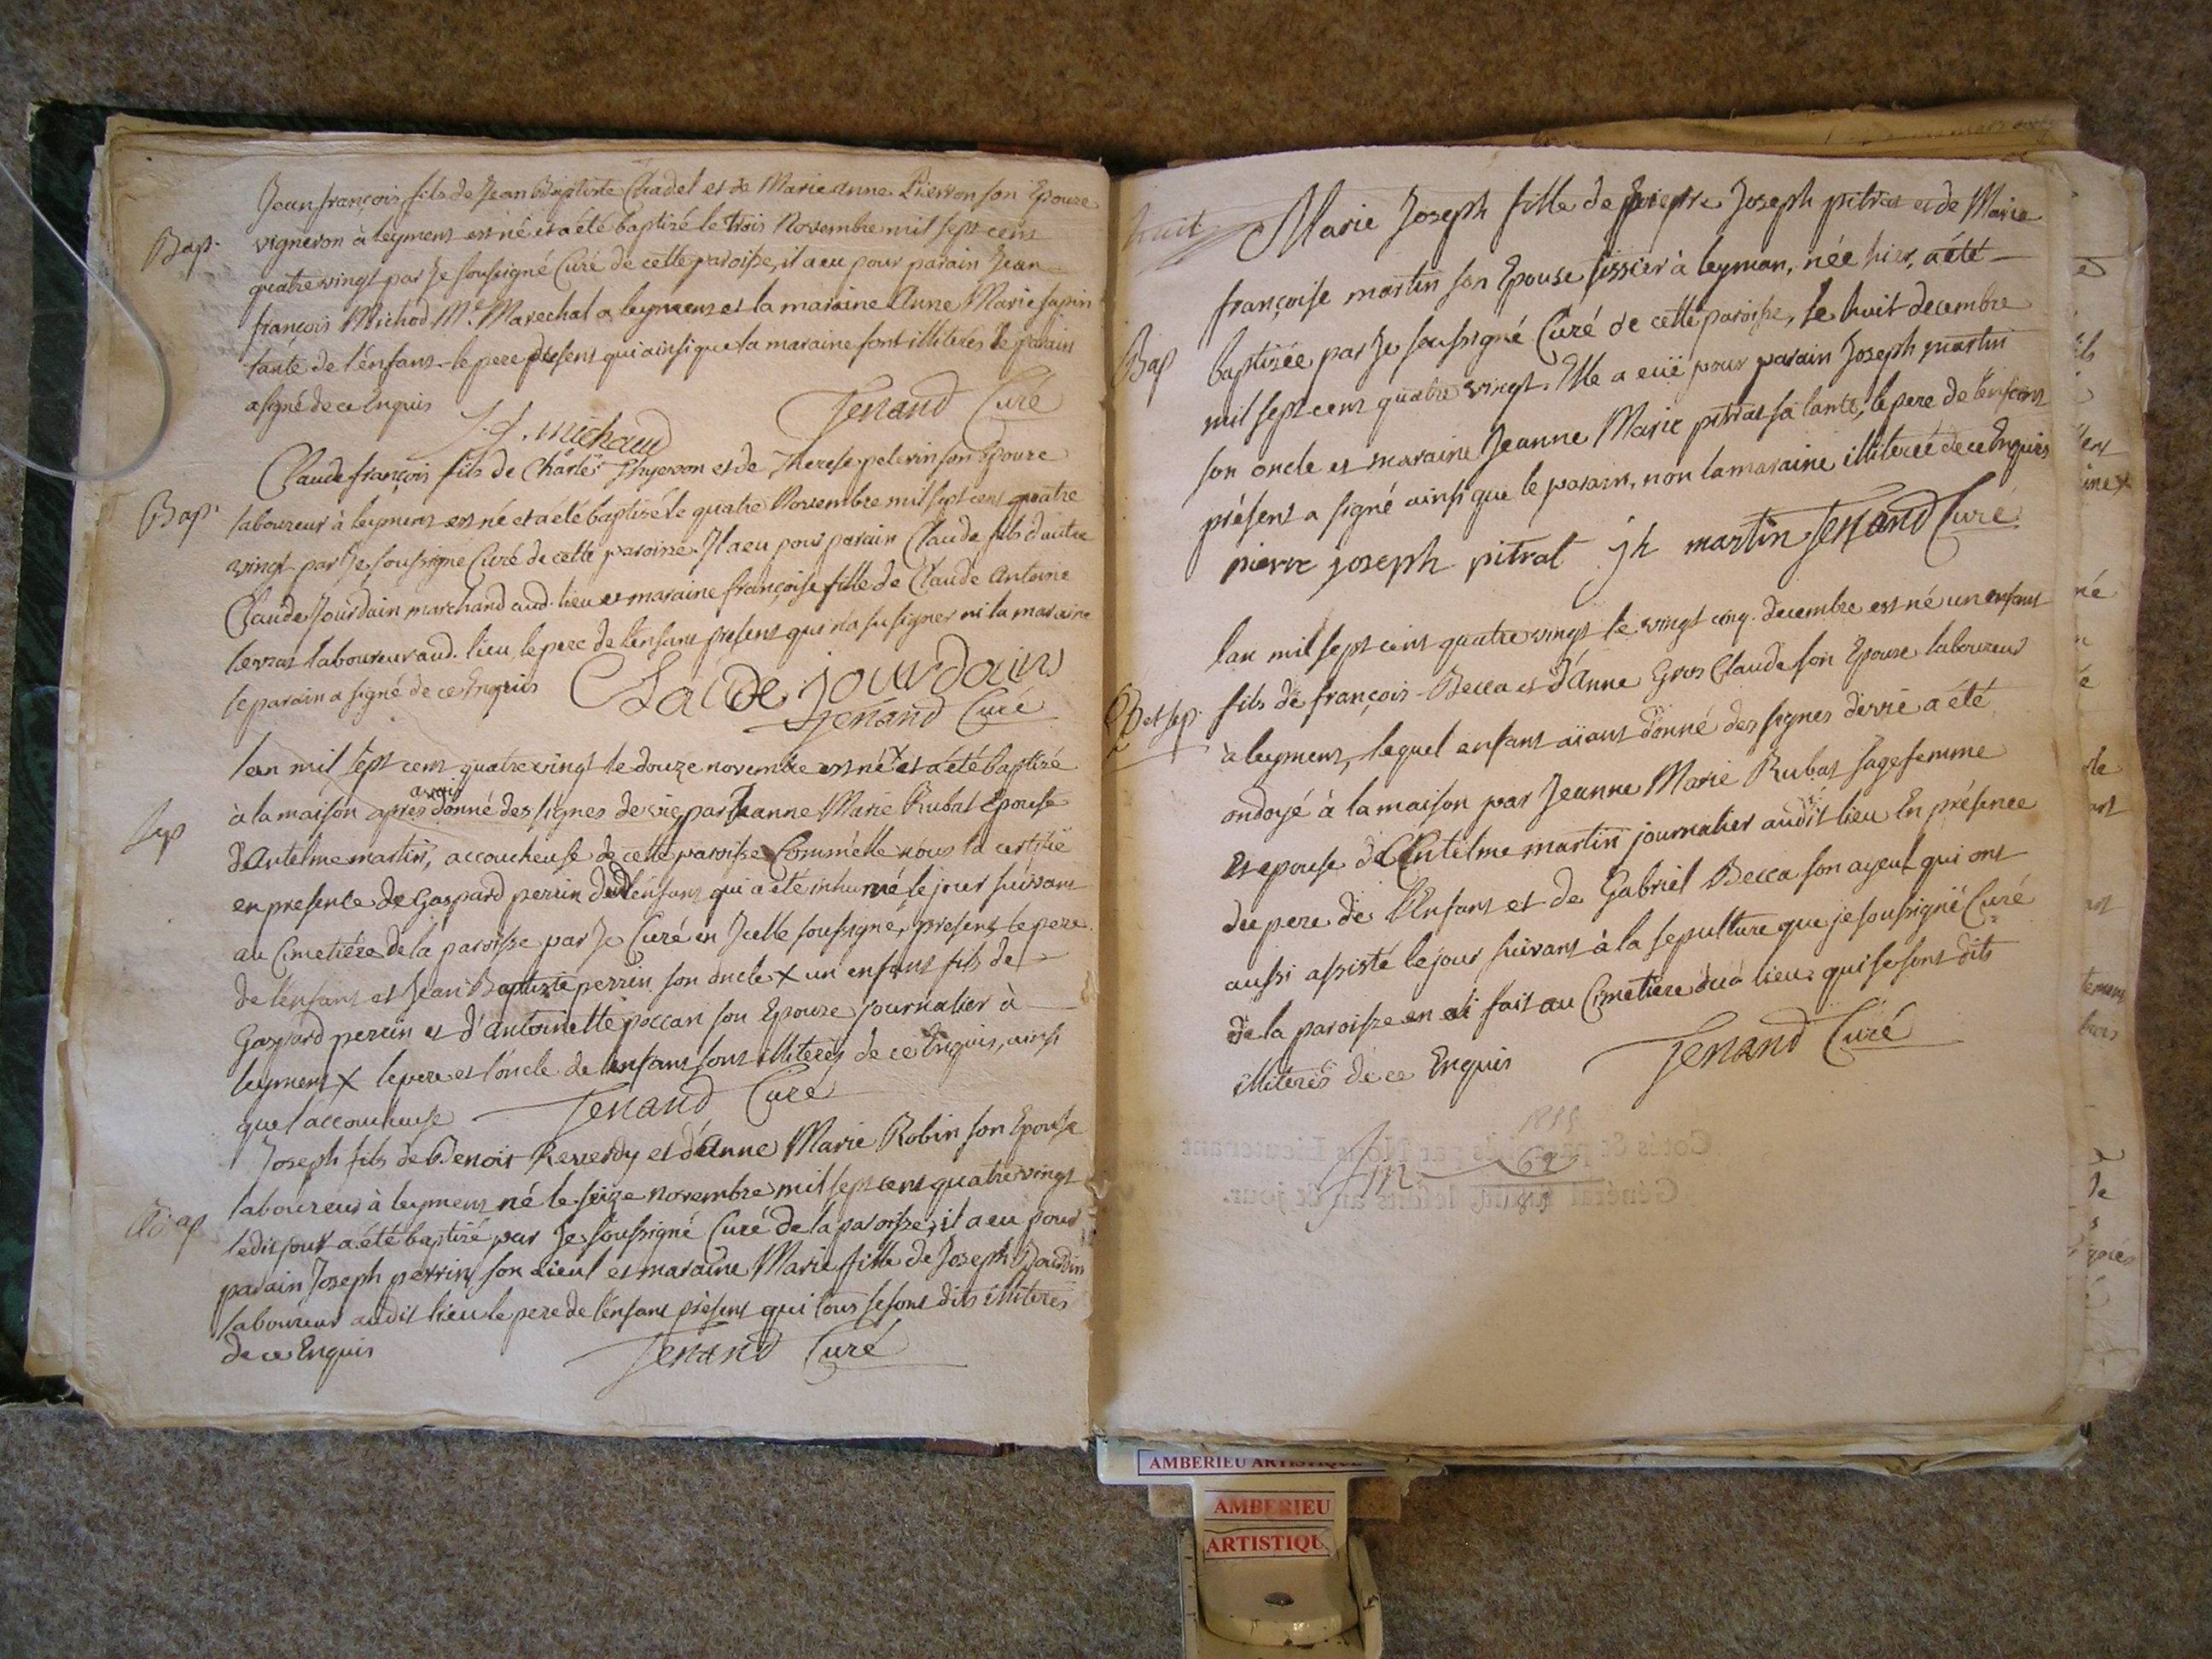 Jean françois fils de Jean Baptiste Chadel et de Marie Anne Pierron son Epouze
Bap. vigneron à leyment est né et a été baptizé le trois Novembre mil sept cent
quatre vingt par Je soussigné Curé de cette paroisse, il a eu pour parain Jean
françois Michod Me. Marechal a leyment et la maraine Anne Marie sapin
tante de l'enfant le pere présent qui ainsi que la maraine sont illiterés le parain
a signé de ce Enquis
J. f. michaud Jenand Curé
Claude françois fils de Charles et de Therese pelerin son Epouze
Bap. laboureur à leyment est né et a été baptisé le quatre Novembre mil sept cent quatre
vingt par Je soussigné Curé de cette paroisse. Il a eu pour parain Claude fils d'autre
Claude Jourdain marchand aud. lieu et maraine françoise fille de Claude Antoine
laboureur aud. lieu, le pere de l'enfant present qui n'a su signer ni la maraine
le parain a signé de ce Enquis Claude jourdain
Jenand Curé
lan mil sept cent quatre vingt le douze novembre est né X et a été baptizé
avoir
Sep à la maison apres donné des signes de vie par Jeanne Marie Rubat Epouse
d'Antelme martin, accoucheuse de cette paroisse Comme elle nous la certifié
en presence de Gaspard perrin dud. enfant qui a été inhumé le jour suivant
au Cimetiére de la paroisse par Je Curé en Icelle soussigné, present le pere
de l'enfant et Jean Baptiste perrin son oncle X un enfant fils de
Gaspard perrin et d'antoinette poccan son Epouze journalier à
leyment X le pere et l'oncle de l'enfant sont illiterés de ce Enquis, ainsi
que l'accoucheuse Jenand Curé
Joseph fils de Benoit Reverdy et d'Anne Marie Robin son Epouse
laboureur à leyment né le seize novembre mil sept cent quatre vingt
Bap ledit jour a été baptizé par Je soussigné Curé de la paroisse, il a eu pour
parain Joseph perrin son aieul et maraine Marie fille de Joseph Jourdin
laboureur audit lieu le pere de l'enfant présent qui tous se sont dits illiterés
de ce Enquis Jenand Curé
huit Marie Joseph fille de pierre Joseph pitrat et de Marie
françoise martin son Epouse tissier à leyman, née hier, a été
Bap baptizée par Je soussigné Curé de cette paroisse, le huit decembre
mil sept cent quatre vingt. Elle a eüe pour parain Joseph martin
son oncle et maraine Jeanne Marie pitrat sa tante, le pere de l'enfant
présent a signé ainsi que le parain, non la maraine illiterée de ce Enquis
pierre joseph pitrat jh martin Jenand Curé
lan mil sept cent quatre vingt le vingt cinq decembre est né un enfant
B et sep. fils de françois Becca et d'Anne Gros Claude son Epouse laboureur
à leyment, lequel enfant aiant donné des signes de vie a été
ondoyé à la maison par Jeanne Marie Rubat sage femme
et epouse d'Antelme martin journalier audit lieu En présence
du pere de l'Enfant et de Gabriel Becca son ayeul qui ont
aussi assisté le jour suivant à la sepulture que je soussigné Curé
de la paroisse en ai fait au Cimetiere dud lieu. qui se sont dits
illiterés de ce Enquis Jenand Curé
fin
AMBERIEU ARTISTIQUE
AMBERIEU
ARTISTIQU